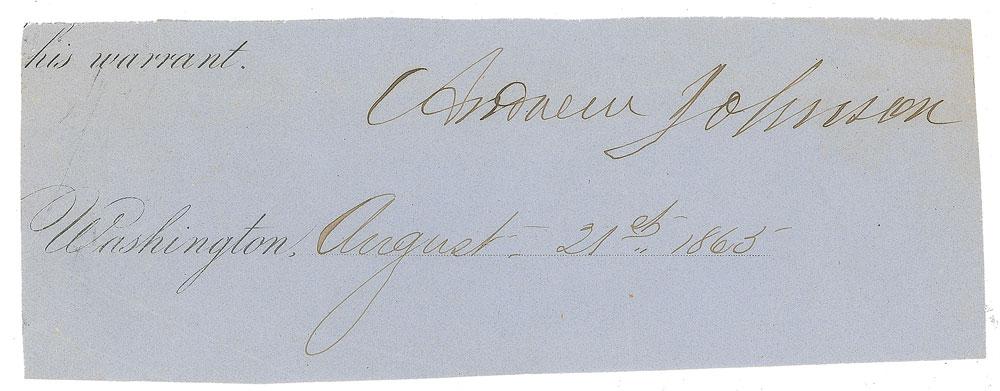 his warrant.
Andrew Johnson
Washington, August 21st 1865